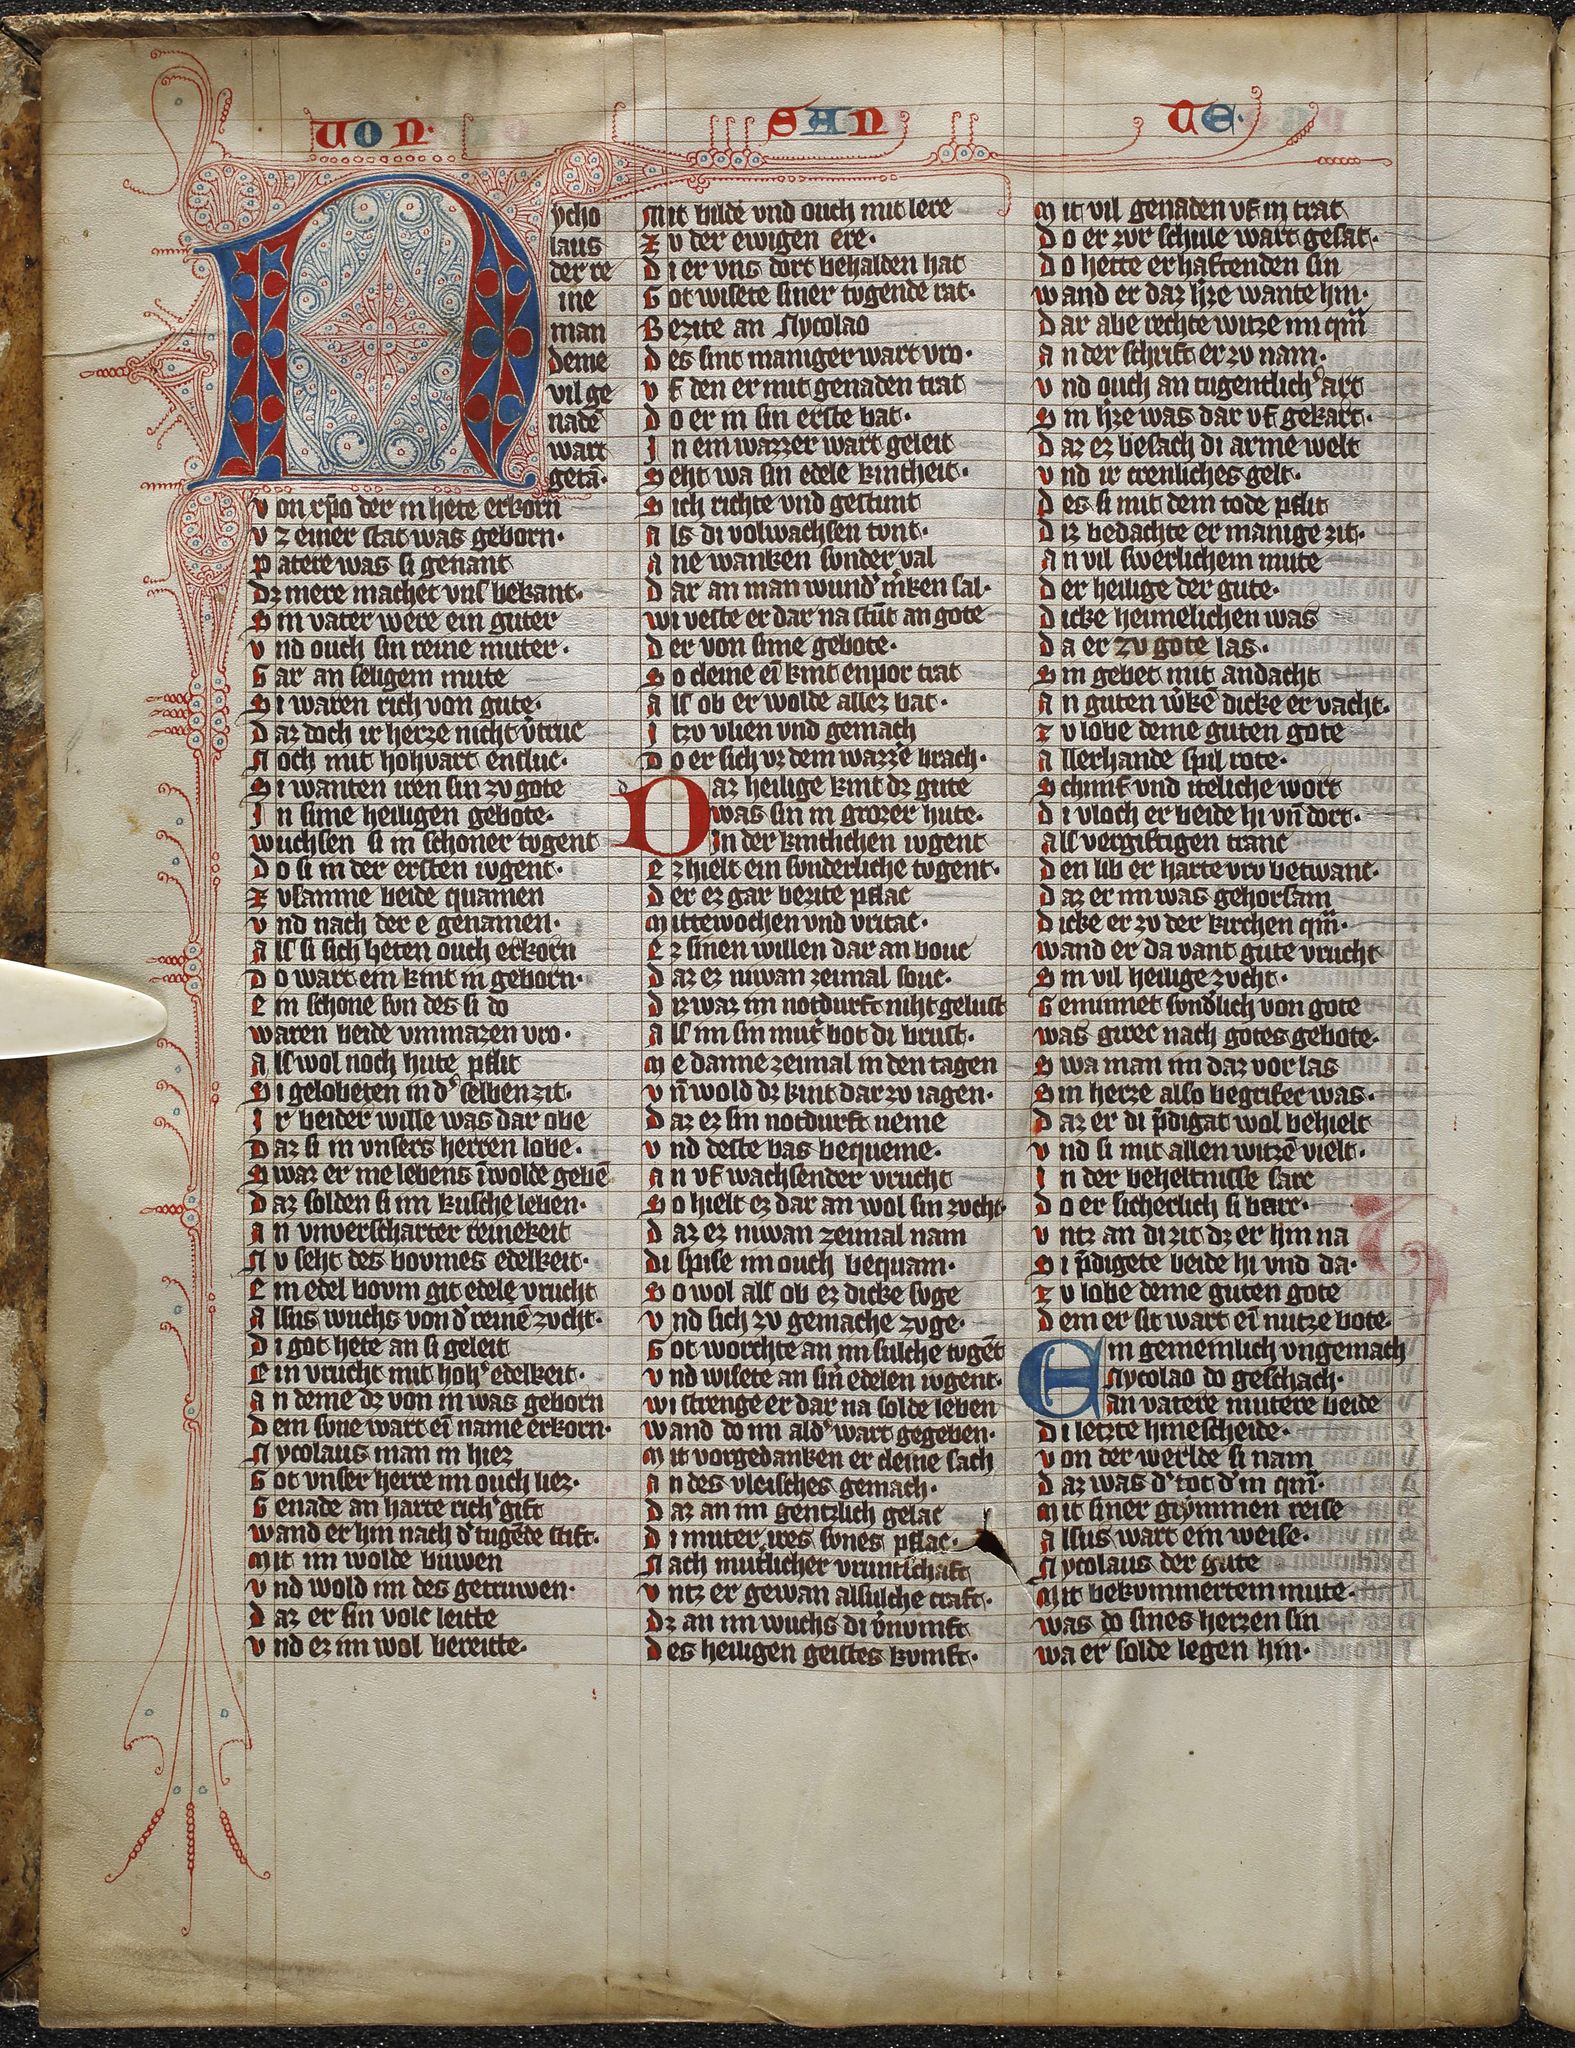 VON·
SAN
TE·
Nycho
laus
der re
ine
man
deme
vil ge
nadē
wart
getā·
von xp̄o der in hete erkorn
vz einer stat was geborn·
patere was si genant
dz mere machet vns bekant·
Sin vater were ein guter
vnd ouch sin reine muter·
Gar an seligem mute
Si waren rich von gute·
Daz doch ir herze nicht v̓truc
Noch mit hohvart entluc·
Si wanten iren sin zv gote
In sime heiligen gebote·
wuchsen si in schoner tvgent
Do si in der ersten ivgent·
Zvsamne beide quamen
vnd nach der e genamen·
Als si sich heten ouch erkorn
Do wart ein kint in geborn·
Ein schone svn des si do
waren beide vnmazen vro·
Als wol noch hute pflit
Si gelobeten in d̓ selben zit·
Ir beider wille was dar obe
Daz si in vnsers herren lobe·
Swaz er me lebens ī wolde gebē
Daz solden si im kusche leben·
An vnverscharter reinekeit
Nv seht des bovmes edelkeit·
Ein edel bovm git edele vrucht
Alsus wuchs von d̓ reinē zvcht·
Di got hete an si geleit
Ein vrucht mit hoh̓ edelkeit·
An deme dz von in was geborn
Dem svne wart eī name erkorn·
Nycolaus man in hiez
Got vnser herre im ouch liez·
Genade an harte rich̓ gift
wand er hin nach d̓ tugēde stift·
Mit im wolde buwen
vnd wold im des getruwen·
Daz er sin volc leitte
vnd ez im wol bereitte·
Mit bilde vnd ouch mit lere
Zv der ewigen ere·
Di er vns dort behalden hat
Got wisete siner tvgende rat·
Bezite an Nycolao
Des sint maniger wart vro·
vf den er mit genaden trat
Do er in sin erste bat·
In ein wazzer wart geleit
Seht wa sin edele kintheit·
Sich richte vnd gestunt
Als di volwachsen tvnt·
Ane wanken sonder val
Dar an man wund̓ m̓ken sal·
wi veste er dar na stūt an gote
Der von sime gebote·
So cleine eī kint enpor trat
Als ob er wolde allez bat·
Itzv vlien vnd gemach
Do er sich vz dem wazzē brach·
Daz heilige kint dz gute
was sin in grozer hute·
In der kintlichen ivgent
Ez hielt ein sonderliche tvgent·
Der ez gar bezite pflac
Mittewochen vnd vritac·
Ez sinen willen dar an bouc
Daz ez niwan zeimal souc·
Diz waz im notdurft niht gelust
Als im sin mut̓ bot di brust·
Me danne zeimal in den tagen
vn̄ wold dz kint dar zv iagen·
Daz ez sin notdurft neme
vnd deste bas bequeme·
An vf wachsender vrucht
So hielt ez dar an wol sin zvcht·
Daz ez niwan zeimal nam
Di spise im ouch bequam·
So wol als ob ez dicke svge
vnd sich zv gemache zvge·
Got worchte an im sulche tvgēt
vnd wisete an sin̄ edelen ivgent·
wi strenge er dar na solde leben
wand do im ald̓ wart gegeben·
Mit vorgedanken er cleine sach
An des vleisches gemach·
Daz an im gentzlich gelac
Di muter ires svnes pflac·
Nach mut̓licher vruntschaft
vntz er gewan alsulche craft·
Dz an im wuchs di v̓nvmft
Des heiligen geistes kvmft·
Mit vil genaden vf in trat
Do er zvr schule wart gesat·
Do hette er haftenden sin
wand er daz h̓ze wante hin·
Dar abe rechte witze im qm̄
An der schrift er zv nam·
vnd ouch an tugentlich̓ art
Sin h̓ze was dar vf gekart·
Daz ez besach di arme welt
vnd ir crenliches gelt·
Des si mit dem tode pflit
Diz bedachte er manige zit·
An vil swerlichem mute
Der heilige der gute·
Dicke heimelichen was
Da er zv gote las·
Sin gebet mit andacht
An guten w̓kē dicke er vacht·
Zv lobe deme guten gote
Allerhande spil rote·
Schimf vnd iteliche wort
Di vloch er beide hi vn̄ dort·
Als vergiftigen tranc
Den lib er harte vrv betwanc·
Daz er im was gehorsam
Dicke er zv der kirchen qm̄·
wand er da vant gute vrucht
Sin vil heilige zvcht·
Gemimet svnd̓lich von gote
was girec nach gotes gebote·
Swa man im daz vor las
Sin herze also begrifec was·
Daz er di p̄digat wol behielt
vnd si mit allen witzē vielt·
In der beheltnisse sarc
Do er sicherlich si barc·
vntz an di zit dz er hin na
Si p̄digete beide hi vnd da·
Zv lobe deme guten gote
Dem er sit wart eī nutze bote·
Ein gemeinlich vngemach
Nycolao do geschach·
An vatere mutere beide
Di letzte hinescheide·
von der werlde si nam
Daz was d̓ tot d̓ in qm̄·
Mit siner grymmen reise
Alsus wart ein weise·
Nycolaus der gute
Mit bekvmmertem mute·
was do sines herzen sin
wa er solde legen hin·